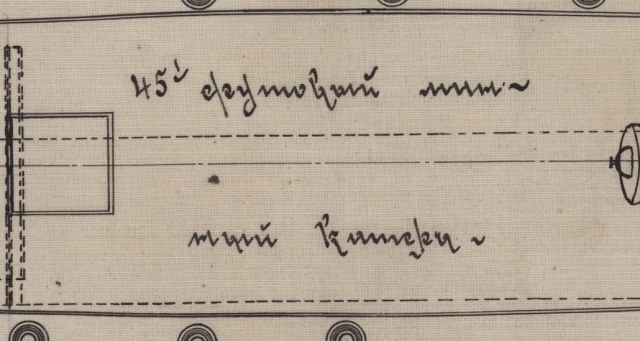 45' футовый мин-
ный Катеръ.